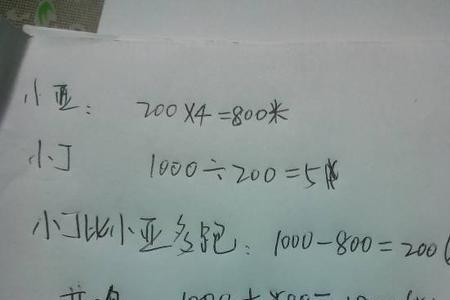 小亚： 200×4=800米
小丁 1000÷200=5
小丁比小亚多跑： 1000-800=200(